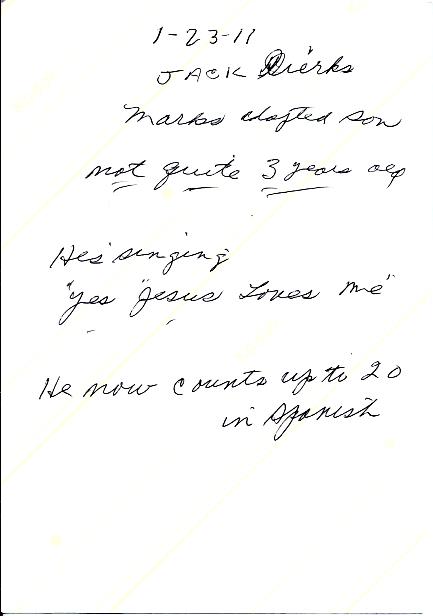 1-23-11
JACK Dierks
Marks adopted son
not quite 3 years old
He's singing
"Yes "Jesus Loves Me"
He now counts up to 20
in Spanish